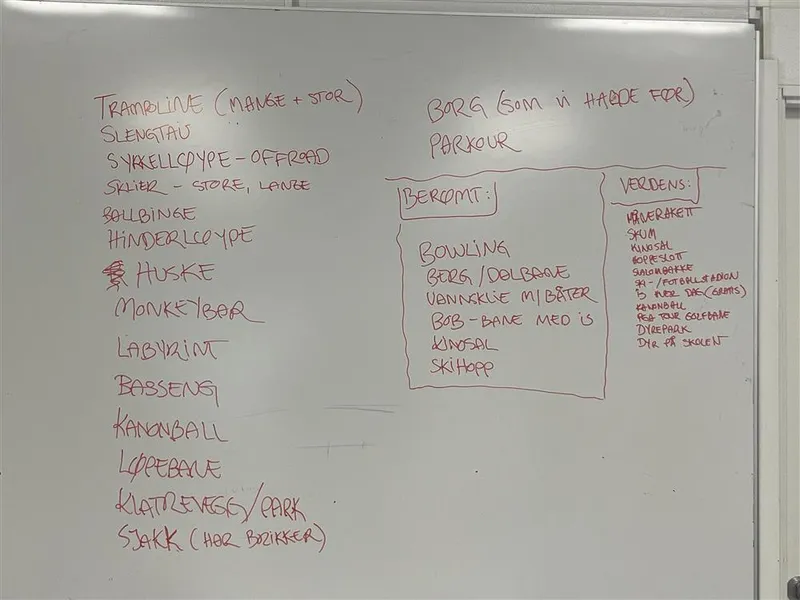 TRAMPOLINE (MANGE + STOR)
SLENGTAU
SYKKELLØYPE - OFFROAD
SKLIER - STORE, LANGE
BALLBINGE
HINDERLØYPE
HUSKE
MONKEYBAR
LABYRINT
BASSENG
KANONBALL
LØPEBANE
KLATREVEGG/PARK
SJAKK (HAR BRIKKER)
BORG (SOM VI HADDE FØR)
PARKOUR
BERØMT:
BOWLING
BERG/DALBANE
VANNSKLIE M/BÅTER
BOB-BANE MED IS
KINOSAL
SKIHOPP
VERDENS:
MÅNERAKETT
SKUM
KINOSAL
HOPPESLOTT
SLALOMBAKKE
SKI-/FOTBALLSTADION
IS HVER DAG (GRATIS)
KANONBALL
PGA TOUR GOLFBANE
DYREPARK
DYR PÅ SKOLEN